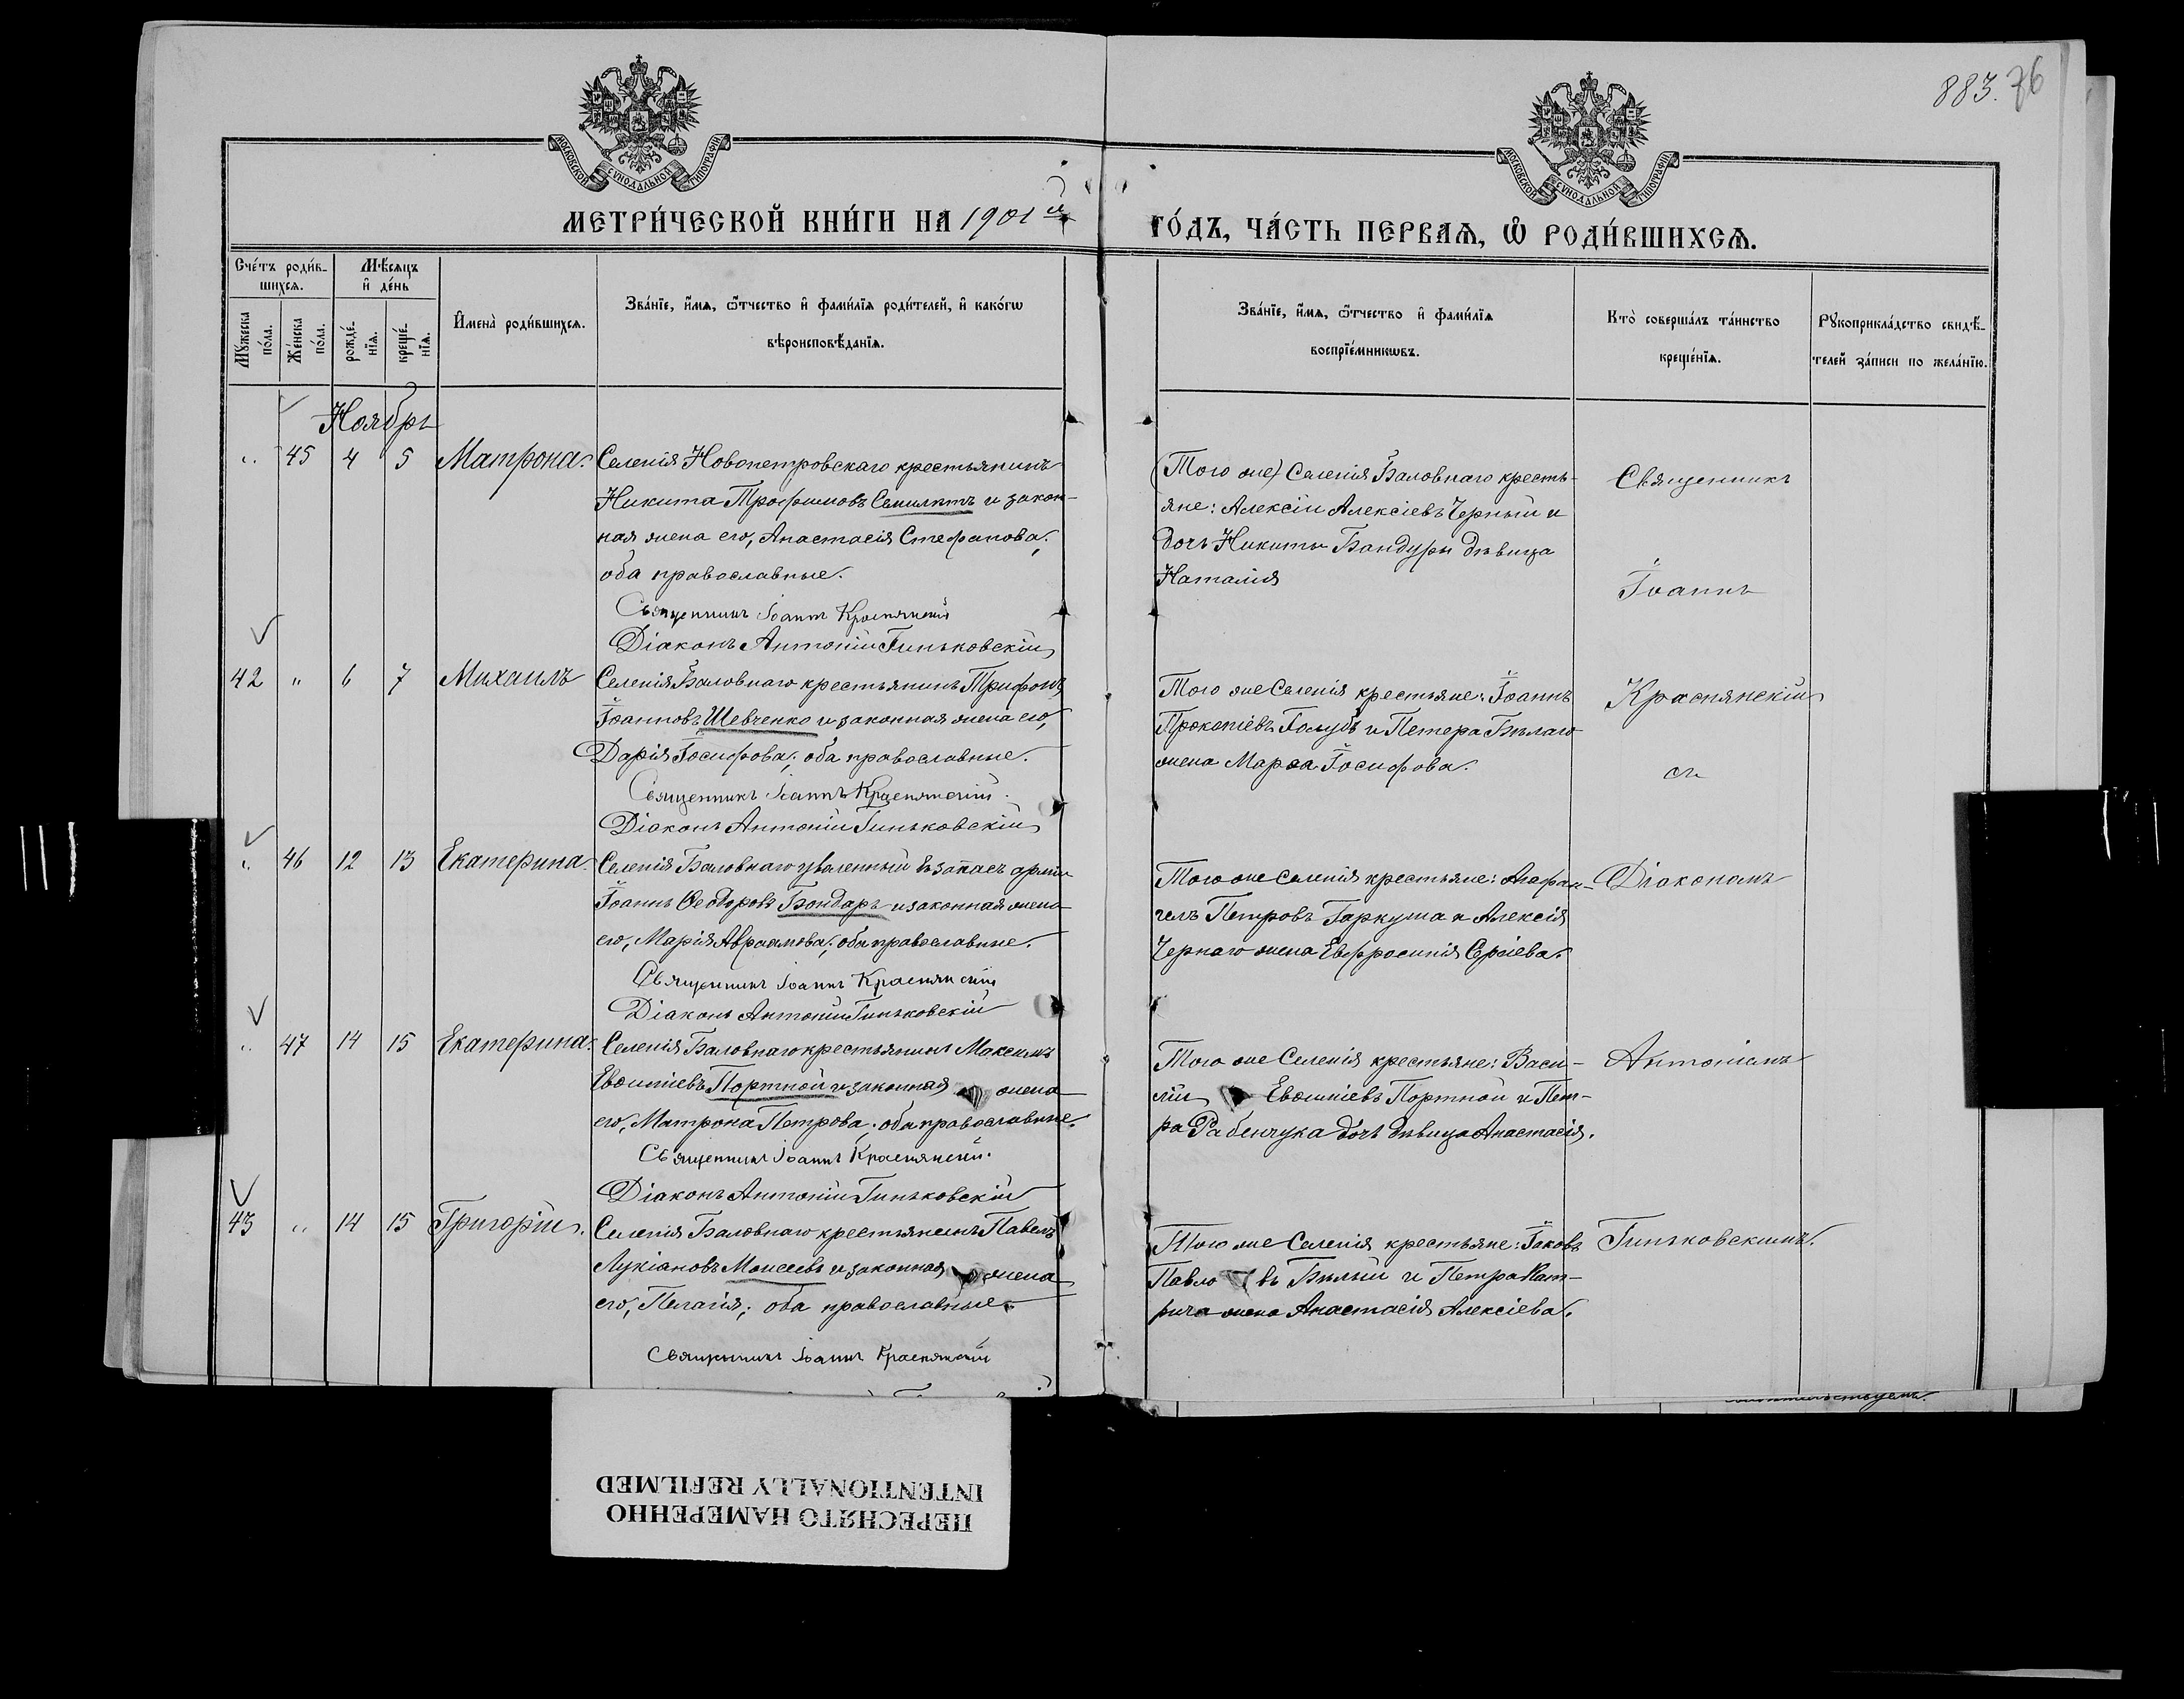 883. 76
МОСКОВСКОЙ СѴНОДАЛЬНОЙ ТИПОГРАФІИ
МОСКОВСКОЙ СѴНОДАЛЬНОЙ ТИПОГРАФІИ
МЕТРИ́ЧЕСКОЙ КНИ́ГИ НА 1901й
ГО́ДЪ, ЧА́СТЬ ПЕРВАѦ, Ѽ РОДИ́ВШИХСѦ.
Сче́тъ роди́в-
шихсѧ.
Мѣ́сѧцъ
и҆ де́нь
Мꙋ́жеска
по́ла.
Же́нска
по́ла.
рожде́-
нїѧ.
креще́-
нїѧ.
И҆мена̀ роди́вшихсѧ.
Зва́нїе, и҆́мѧ, ѻ҆́тчество и҆ фами́лїѧ роди́телей, и҆ како́гѡ
вѣроисповѣ́данїѧ.
Зва́нїе, и҆́мѧ, ѻ҆́тчество и҆ фами́лїѧ
воспрїе́мникѡвъ.
Кто̀ соверша́лъ та́инство
креще́нїѧ.
Рꙋкоприкла́дство свидѣ́-
телей за́писи по жела́нїю.
Ноябрь
" 45 4 5 Матрона.
Селенія Новопетровскаго крестьянинъ
Никита Трофимовъ Семилѣтъ и закон-
ная жена его, Анастасія Стефанова;
оба православные.
Священникъ Іоаннъ Краснянскій
Діаконъ Антоній Гиньковскій
(Того же) Селенія Баловнаго кресть-
яне: Алексій Алексіевъ Черный и
дочь Никиты Бандуры дѣвица
Наталія
Священникъ
Іоаннъ
42 " 6 7 Михаилъ
Селенія Баловнаго крестьянинъ Трифонъ
Іоанновъ Шевченко и законная жена его,
Дарія Іосифова; оба православные.
Священникъ Іоаннъ Краснянскій.
Діаконъ Антоній Гиньковскій
Того же Селенія крестьяне: Іоаннъ
Прокопіевъ Голубъ и Петера Бѣлаго
жена Марѳа Іосифова.
Краснянскій
съ
" 46 12 13 Екатерина.
Селенія Баловнаго уволенный въ запасъ арміи
Іоаннъ Ѳеодоровъ Бондарь и законная жена
его, Марія Авраамова; оба православные.
Священникъ Іоаннъ Краснянскій
Діаконъ Антоній Гиньковскій
Того же Селенія крестьяне: Агафан-
гелъ Петровъ Гаркуша и Алексія
Чернаго жена Евфросинія Сергіева.
Діакономъ
" 47 14 15 Екатерина.
Селенія Баловнаго крестьянинъ Максимъ
Евѳиміевъ Портной и законная жена
его, Матрона Петрова; оба православные.
Священникъ Іоаннъ Краснянскій.
Діаконъ Антоній Гиньковскій
Того же Селенія крестьяне: Васи-
лій Евѳиміевъ Портной и Пет-
ра Рабенчука дочь дѣвица Анастасія.
Антоніемъ
43 " 14 15 Григорій.
Селенія Баловнаго крестьянинъ Павелъ
Лукіановъ Моисеевъ и законная жена
его, Пелагія; оба православные.
Священникъ Іоаннъ Краснянскій
Того же Селенія крестьяне: Іаковъ
Павловъ Бѣлый и Петра Кат-
рича жена Анастасія Алексіева.
Гиньковскимъ.
ПЕРЕСНЯТО НАМЕРЕННО
INTENTIONALLY REFILMED